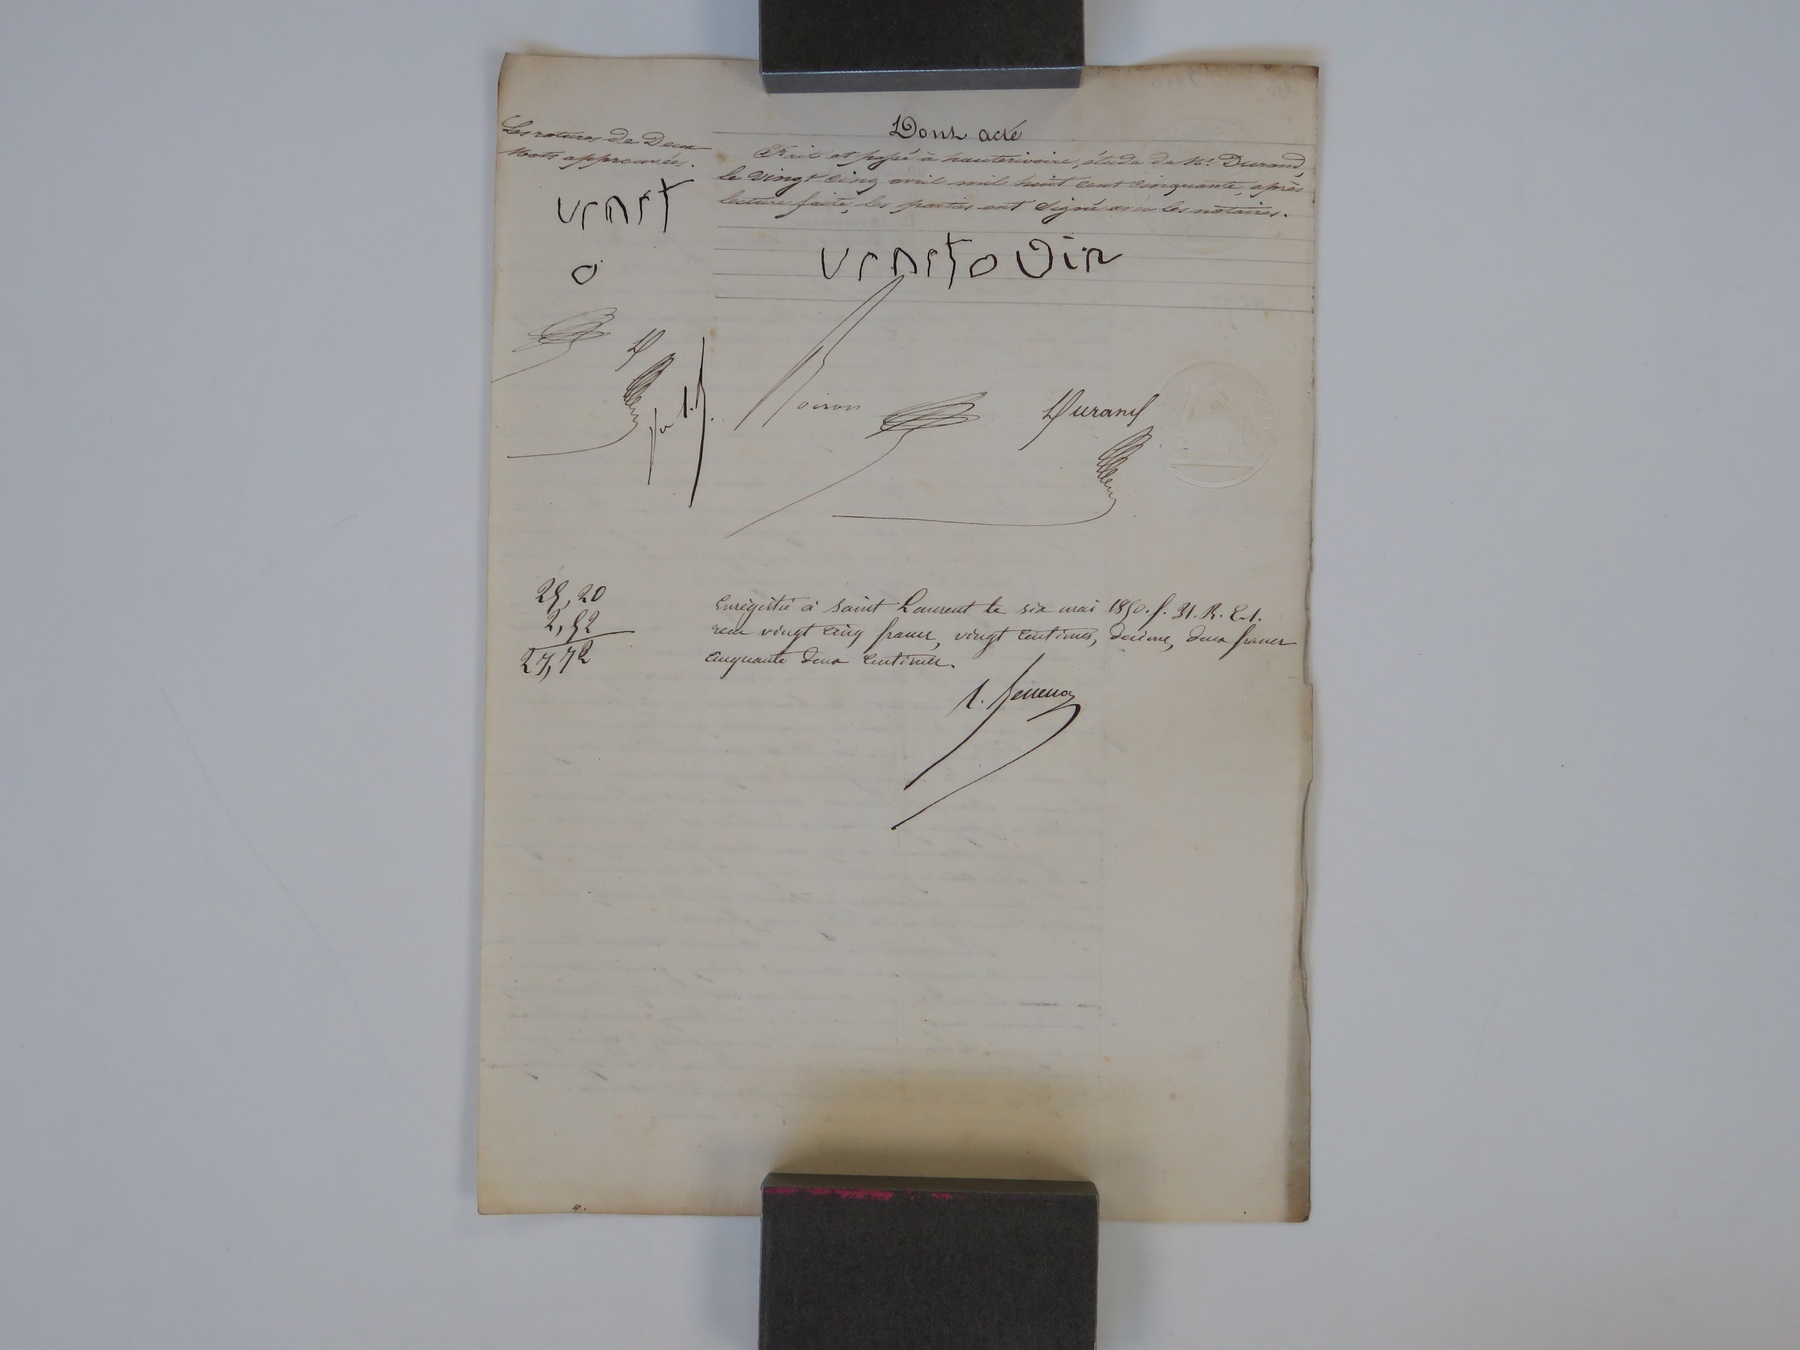 Dont acte
Les ratures de Deux
Mots approuvées.
Fait et passé à hauterivoire, étude de Me. Durand,
le vingt cinq avril mil huit cent cinquante, après
lecture faite, les parties ont signé avec les notaires.
D
Durand
25,20
2,52
27,72
Enregistré à Saint Laurent le six mai 1850. f. 31. R. C. 1.
reçu vingt cinq francs, vingt centimes, décime, deux francs
cinquante deux centimes.